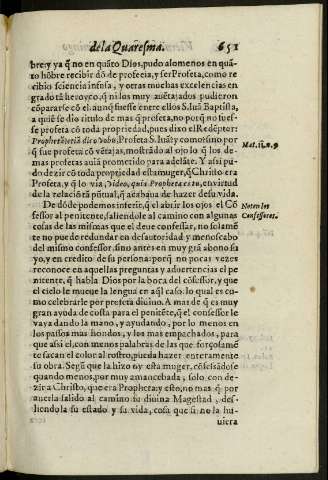 de la Quaresma. 651
bre: y ya q̃ no en quãto Dios, pudo alomenos en quã-
to hõbre recibir dõ de profecia, y ser Profeta, como re
cibio sciencia infusa, y otras muchas excelencias en
grado tã heroyco, q̃ ni los muy auẽtajados pudieron
cõpararse cõ el. aunq̃ fuesse entre ellos S. Iuã Baptista,
a quiẽ se dio titulo de mas q̃ profeta, no porq̃ no fues-
se profeta cõ toda propriedad, pues dixo el Redẽptor:
Mat. ii. n. 9
q̃ fue profeta cõ vẽtaja, mostrãdo al ojo lo q̃ los de-
mas profetas auiã prometido para adelãte. Y assi pu-
do dezir cõ toda propriedad esta muger, q̃ Christo era
Profeta, y q̃ lo via, Video, quia Propheta es tu, en virtud
de la relaciõ tã pũtual, q̃ acabaua de hazer de su vida.
De dõde podemos inferir, q̃ el abrir los ojos el Cõ
Noten los
Confessores.
fessor al penitente, saliendole al camino con algunas
cosas de las mismas que el deue confessar, no solamẽ
te no puede redundar en desautoridad y menoscabo
del mismo confessor, sino antes en muy grã abono su
yo, y en credito de su persona: porq̃ no pocas vezes
reconoce en aquellas preguntas y aduertencias el pe
nitente, q̃ habla Dios por la boca del cõfessor, y que
el cielo le mueue la lengua en aq̃l caso. lo qual es co-
mo celebrarle por profeta diuino. A mas de q̃ es muy
gran ayuda de costa para el penitẽte, q̃ el confessor le
vaya dando la mano, y ayudando, por lo menos en
los passos mas hondos, y los mas empachados, para
que assi el, con menos palabras de las que forçosamẽ
te sacan el color al rostro, pueda hazer enteramente
su obra. Segũ que la hizo oy esta muger, cõfessãdose
quando menos, por muy amancebada, solo con de-
zir a Christo, que era Propheta: y esto, no mas q̃ por
auerla salido al camino su diuina Magestad, des-
liendola su estado y su vida, cosa que si no la hu-
uiera